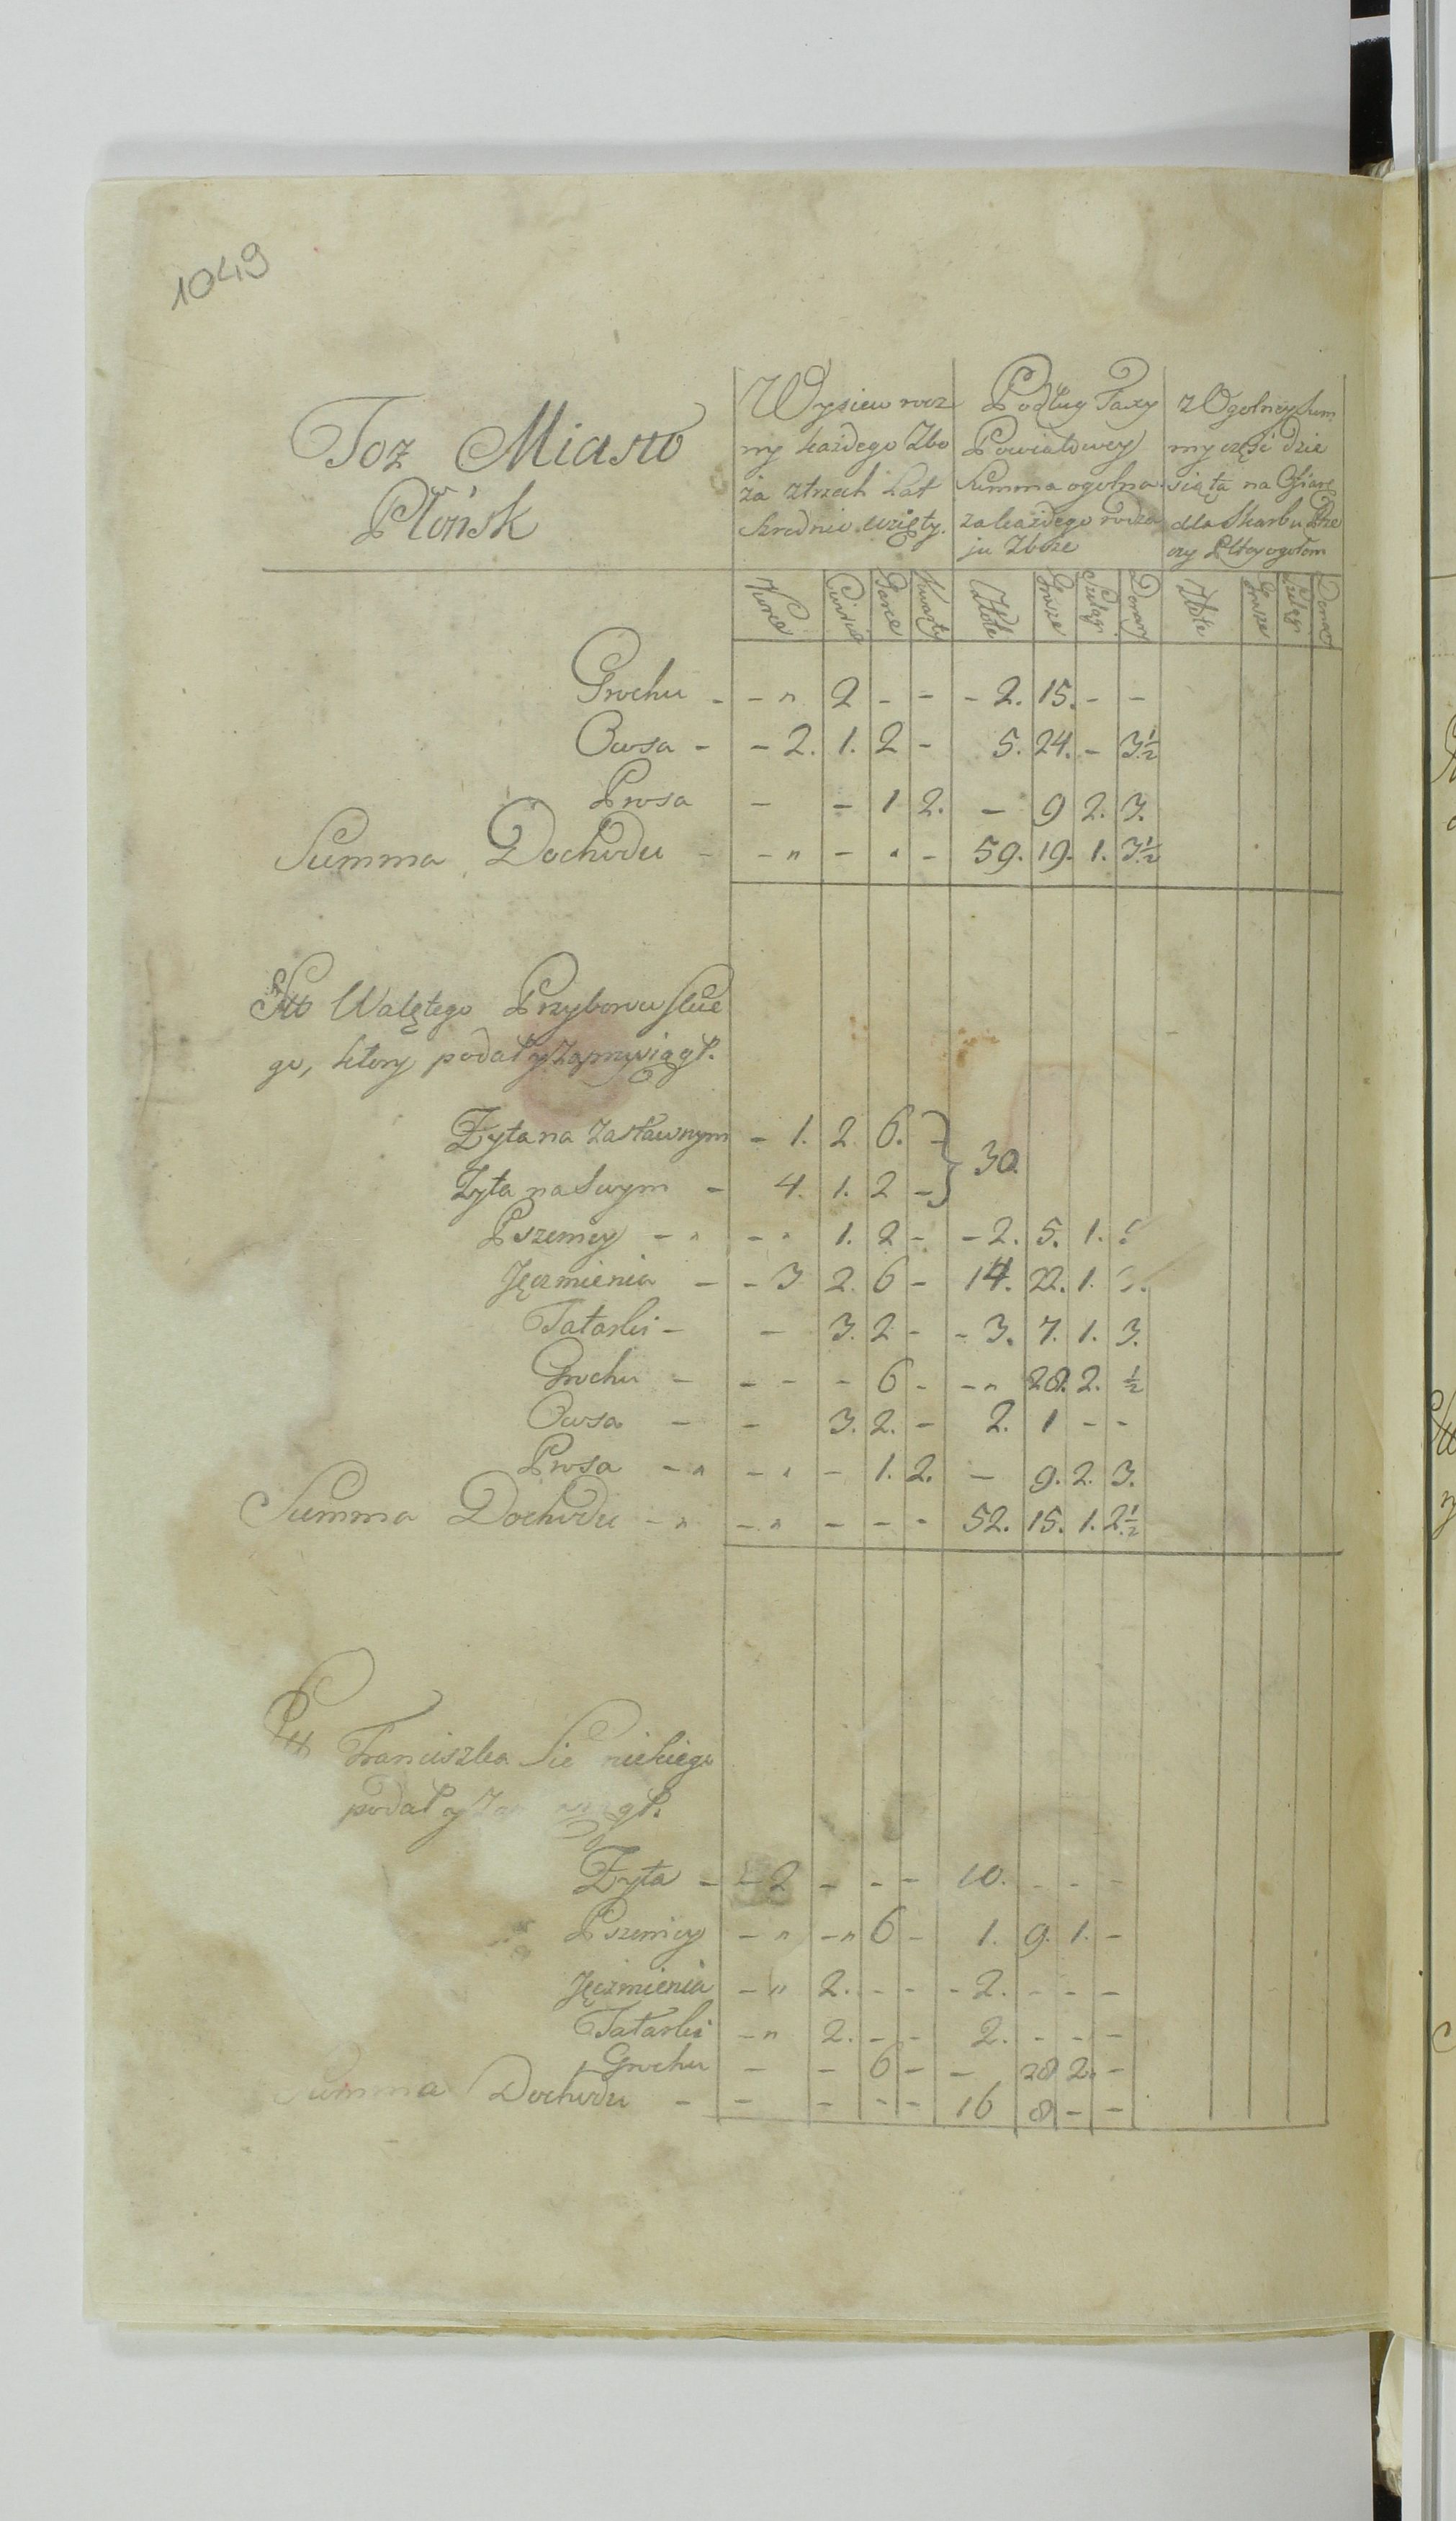 1049
Toż Miasto
Płońsk
Wysiew rocz
ny każdego Zbo
ża ztrzech Lat
Srzednio wzięty.
Podług Taxy
Powiatowey
Summa ogolna
zakażdego rodza
ju Zboże
z Ogolney Sum
my część dzie
siąta na Ofiarę
dla Skarbu Rze
czy Pltey ogołem
Korce Ćwierci Garce Kwarty Złote Grosze Szelągi Denary Złote Grosze Szelągi Denar
Grochu - - " 2 - - - 2. 15. - -
Owsa - - 2. 1. 2 - 5. 24. - 3½
Prosa - - 1 2. - 9 2. 3.
Summa Dochodu - - " - - - 59. 19. 1. 3½
Walętego Przyborowskie
go, ktory podał y zaprzysiągł.
Żyta na Zastawnym - 1. 2. 6. -
Żyta na Swym - 4. 1. 2 - } 30.
Pszenicy - " - " 1. 2 - - 2. 5. 1.
Jęczmienia - - 3 2. 6 - 14. 22. 1.
Tatarki - - 3. 2 - - 3. 7. 1. 3.
Grochu - - - - 6 - - " 28. 2. ½
Owsa - - 3. 2. - 2. 1 - -
Prosa - " - " - 1. 2. - 9. 2. 3.
Summa Dochodu - " - " - - - 52. 15. 1. 2½
Franciszka Sie nickiego
podał y Za gł.
Żyta - - 2 - - - 10. - - -
Pszenicy - " - " 6 - 1. 9. 1. -
Jęczmienia - " 2. - - - 2. - - -
Tatarki - " 2. - - 2. - - -
Grochu - - 6 - - 28 2. -
Summa Dochodu - - - - - 16 8 - -